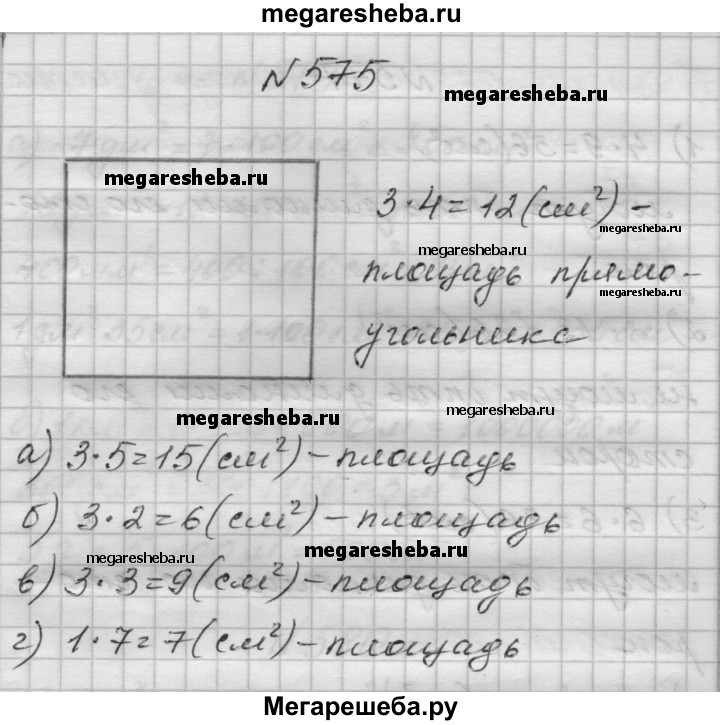 megaresheba.ru
N 575
megaresheba.ru
megaresheba.ru
3·4=12(см²) –
megaresheba.ru
megaresheba.ru
площадь прямо-
megaresheba.ru
угольника
megaresheba.ru
megaresheba.ru
а) 3·5=15(см²) – площадь
б) 3·2=6(см²) – площадь
megaresheba.ru
megaresheba.ru
в) 3·3=9(см²) – площадь
г) 1·7=7(см²) – площадь
Мегарешеба.ру